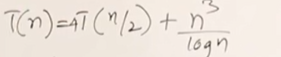 T(n)=4T(n/2) + n³/logn